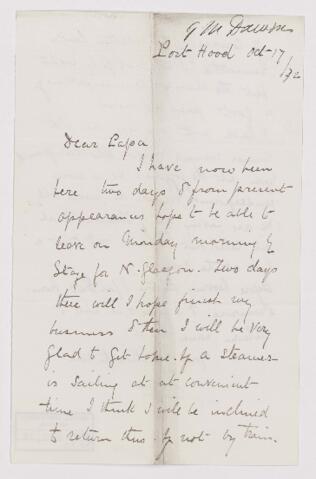 G M Dawson
Port Hood Oct 17
/72
Dear Papa
I have now been
here two days & from present
appearances hope to be able to
leave on Monday morning by
Stage for N. Glasgow. Two days
there will I hope finish my
business & then I will be very
glad to get home. If a Steamer
is sailing at at convenient
time I think I will be inclined
to return thus. If not by train.